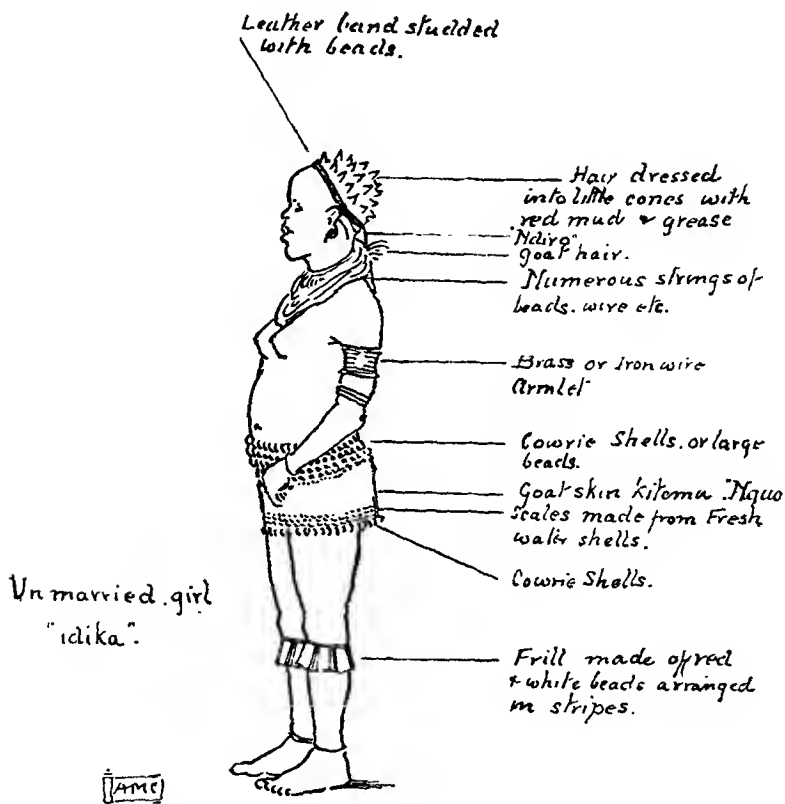 Leather band studded
with beads.
Hair dressed
into little cones with
red mud & grease
"Ndiro"
goat hair.
Numerous strings of
beads. wire etc.
Brass or Iron wire
Armlet
Cowrie Shells. or large
beads.
Goat skin kitemu "Nguo
Scales made from Fresh
water shells.
Cowrie Shells.
Unmarried. girl
"idika".
Frill made of red
& white beads arranged
in stripes.
AMC